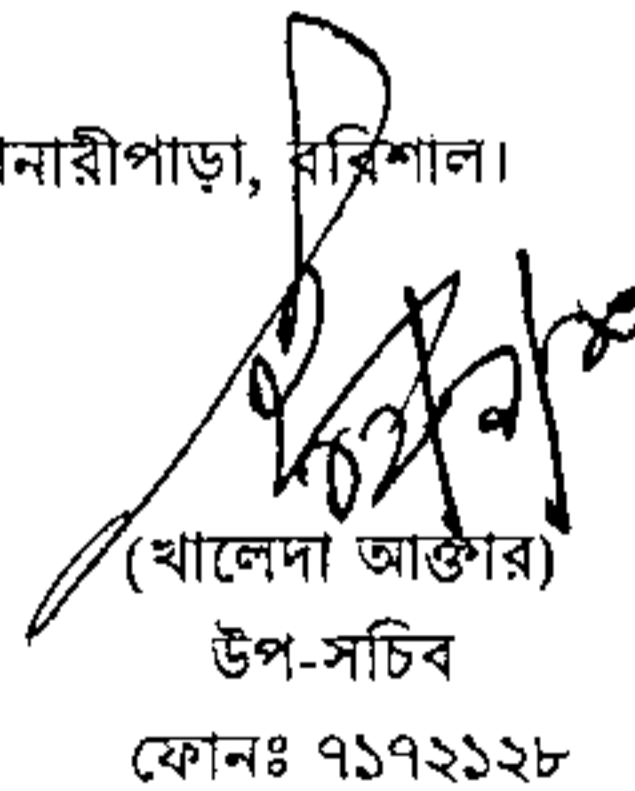 নারীপাড়া, বরিশাল।
(খালেদা আক্তার)
উপ-সচিব
ফোনঃ ৭১৭২১২৮